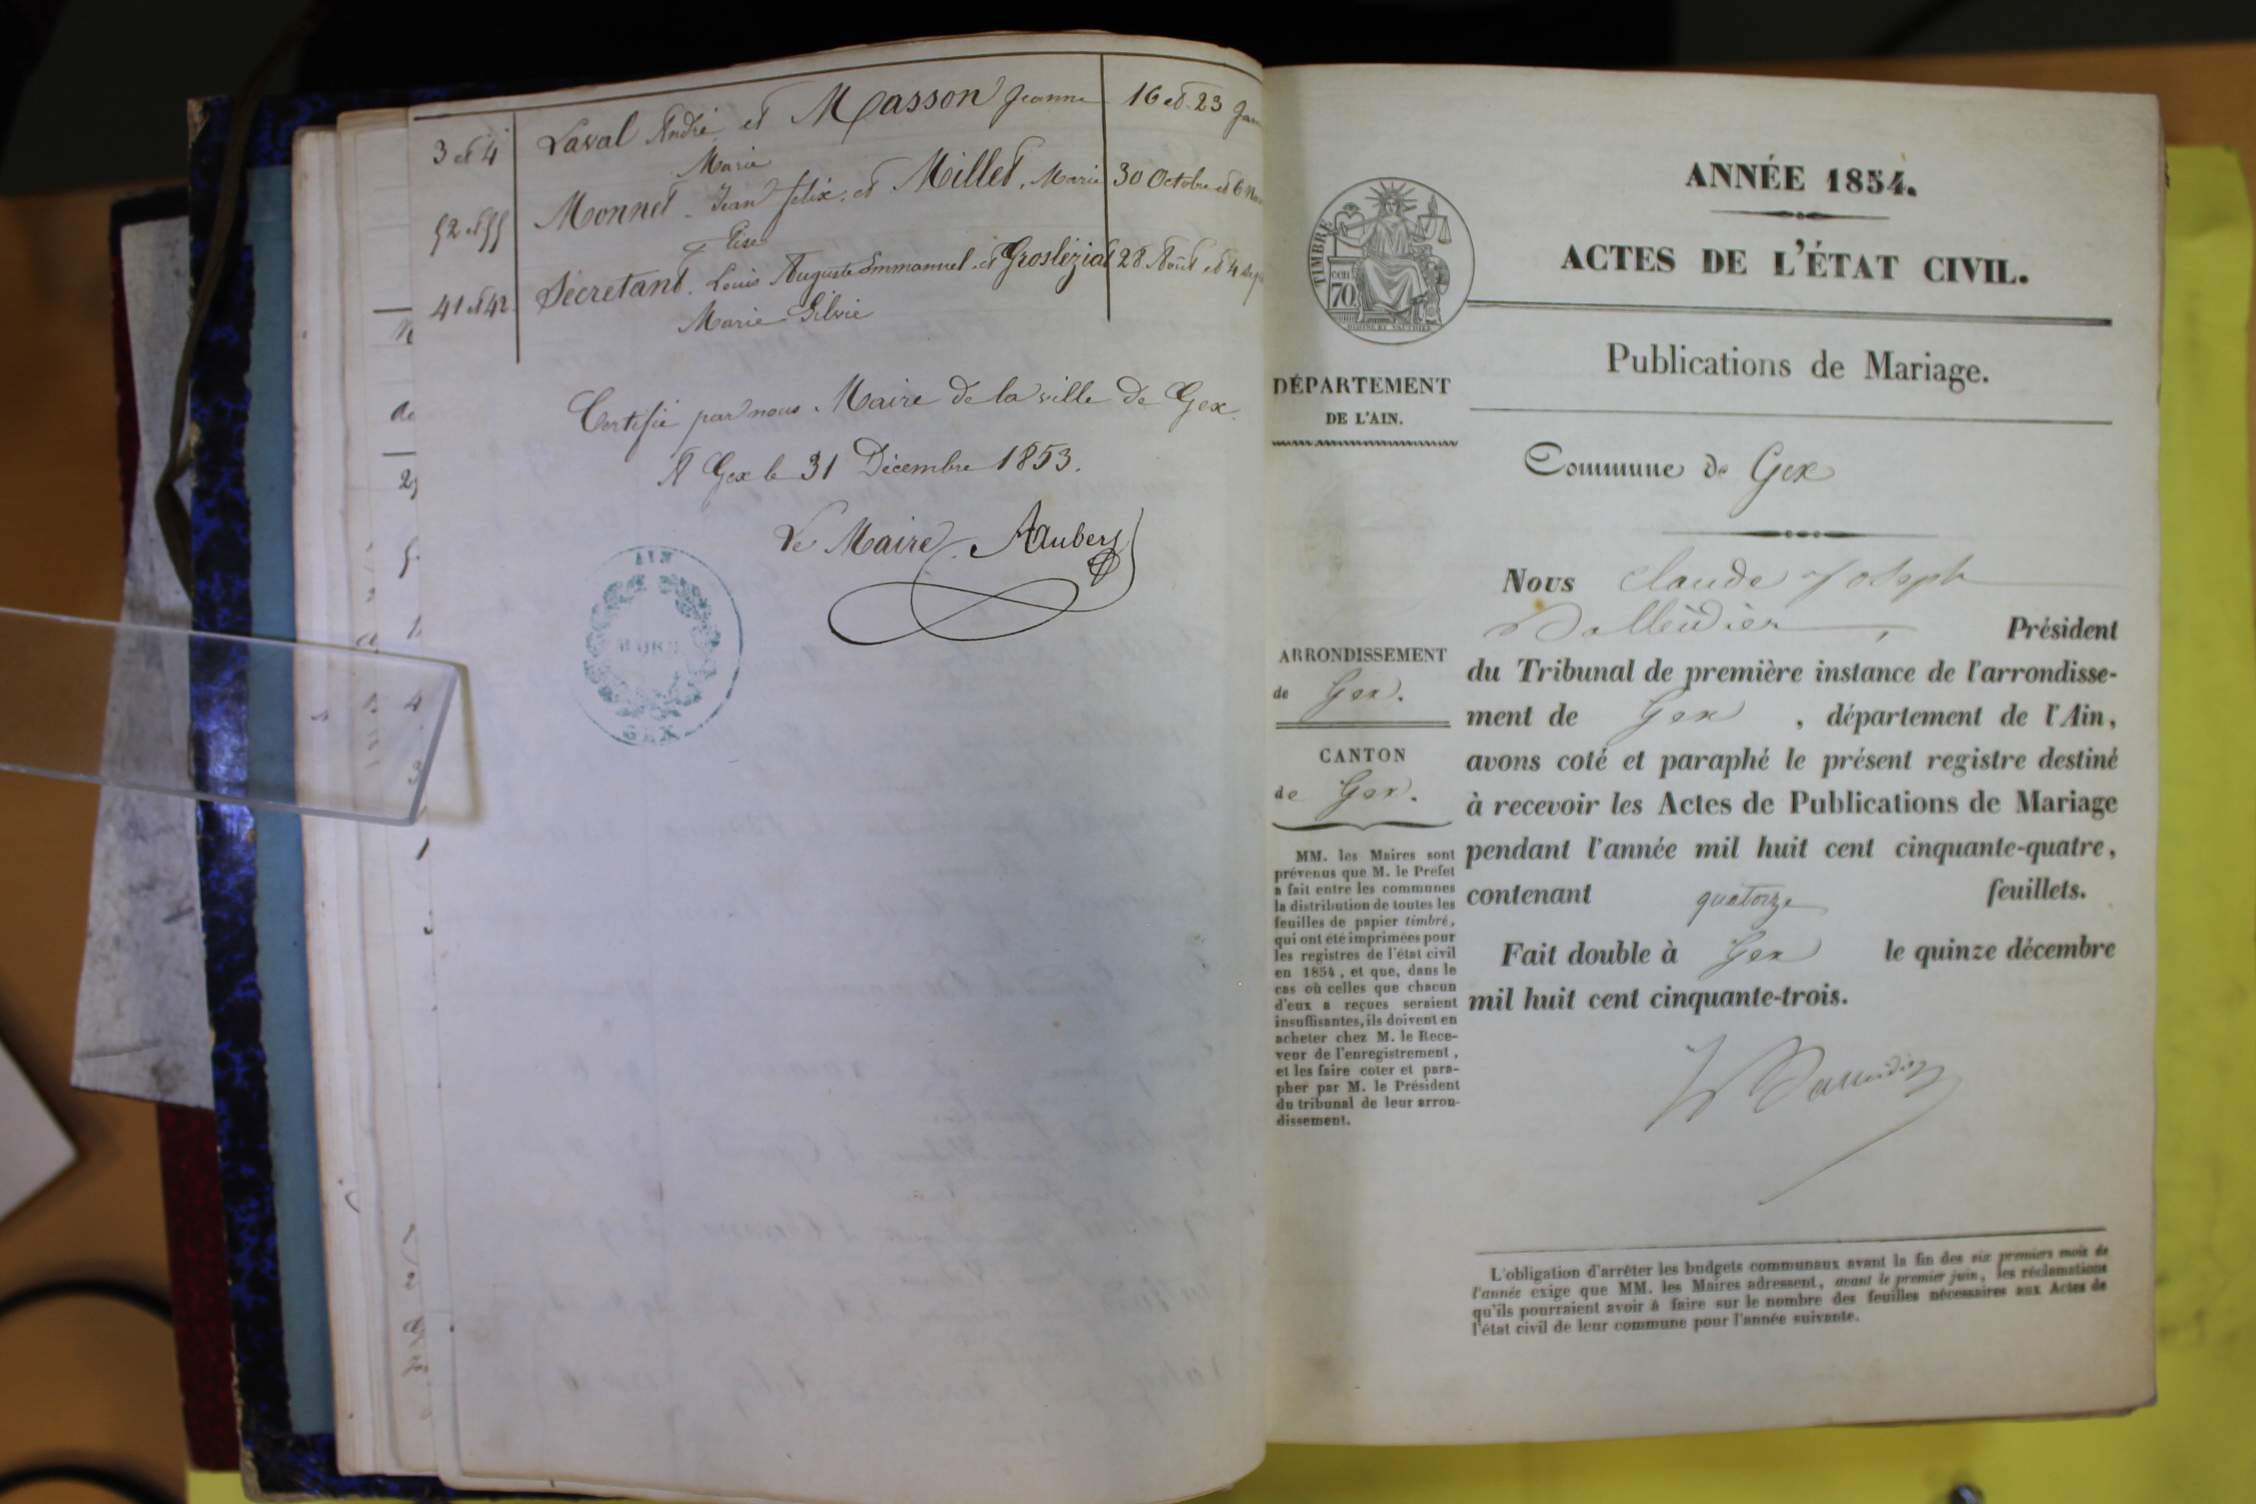 3 et 4 Laval André et Masson Jeanne 16 et 23
Marie
52 et 55 Monnet Jean félix et Millet Marie 30 Octobre et 6
Elise
41 et 42 Sécretant Louis Auguste Emmanuel et 28 Août et 4
Marie Silvie
Certifié par nous Maire de la ville de Gex.
A Gex le 31 Décembre 1853.
Le Maire
AIN
GEX
ANNÉE 1854.
ACTES DE L'ÉTAT CIVIL.
TIMBRE
cen
70
Publications de Mariage.
DÉPARTEMENT
DE L'AIN.
Commune de Gex
ARRONDISSEMENT
de Gex.
CANTON
de Gex.
MM. les Maires sont
prévenus que M. le Préfet
a fait entre les communes
la distribution de toutes les
feuilles de papier timbré,
qui ont été imprimées pour
les registres de l'état civil
en 1854, et que, dans le
cas où celles que chacun
d'eux a reçues seraient
insuffisantes, ils doivent en
acheter chez M. le Rece-
veur de l'enregistrement,
et les faire coter et para-
pher par M. le Président
du tribunal de leur arron-
dissement.
Nous Claude Joseph
Président
du Tribunal de première instance de l'arrondisse-
ment de Gex, département de l'Ain,
avons coté et paraphé le présent registre destiné
à recevoir les Actes de Publications de Mariage
pendant l'année mil huit cent cinquante-quatre,
contenant quatorze feuillets.
Fait double à Gex le quinze décembre
mil huit cent cinquante-trois.
L'obligation d'arrêter les budgets communaux avant la fin des six premiers mois de
l'année exige que MM. les Maires adressent, avant le premier juin, les réclamations
qu'ils pourraient avoir à faire sur le nombre des feuilles nécessaires aux Actes de
l'état civil de leur commune pour l'année suivante.